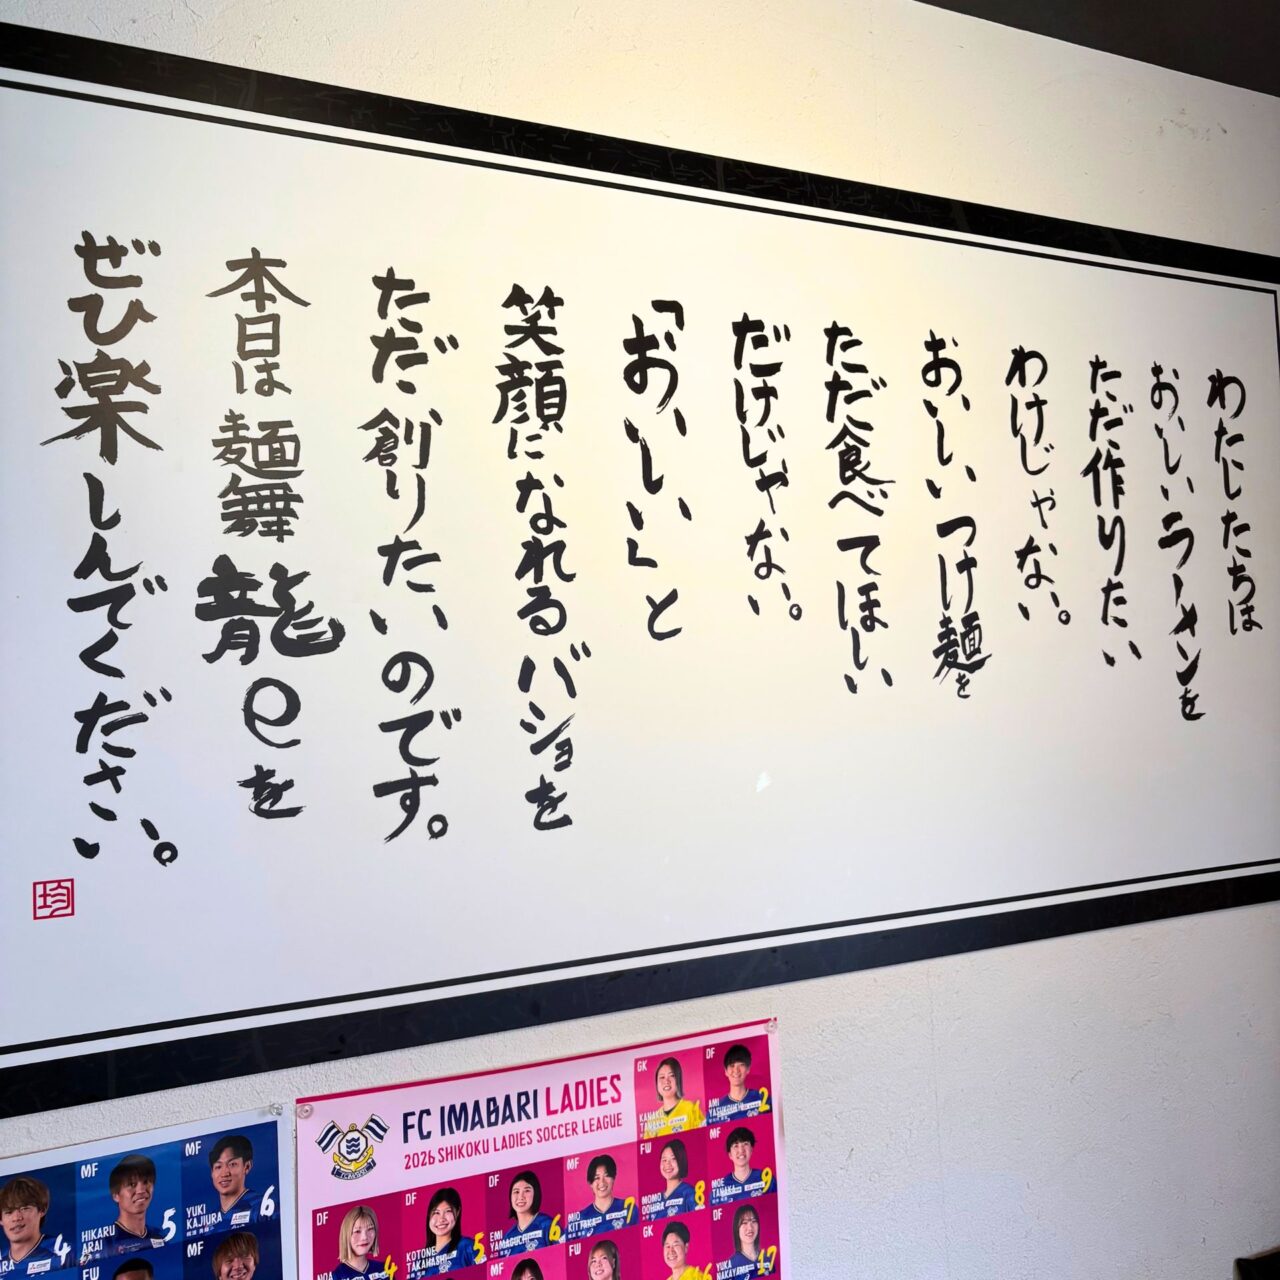 わたしたちは
おいしいラーメンを
ただ作りたい
わけじゃない。
おいしいつけ麺を
ただ食べてほしい
だけじゃない。
「おいしい」と
笑顔になれるバショを
ただ創りたいのです。
本日は麺舞龍eを
ぜひ楽しんでください。
均
FC IMABARI LADIES
2026 SHIKOKU LADIES SOCCER LEAGUE
GK
KANAKO
TANAKA
DF
AMI
YASUKOUCHI
2
DF
NOA
4
DF
KOTONE
TAKAHASHI
5
DF
EMI
YAMAGUCHI
6
MF
MIO
KITTAKA
7
FW
MOMO
OOHIRA
8
MF
MOE
TANAKA
9
FW
GK
16
DF
YUKA
NAKAYAMA
17
4
MF
HIKARU
ARAI
5
MF
YUKI
KAJIURA
6
FW
MF